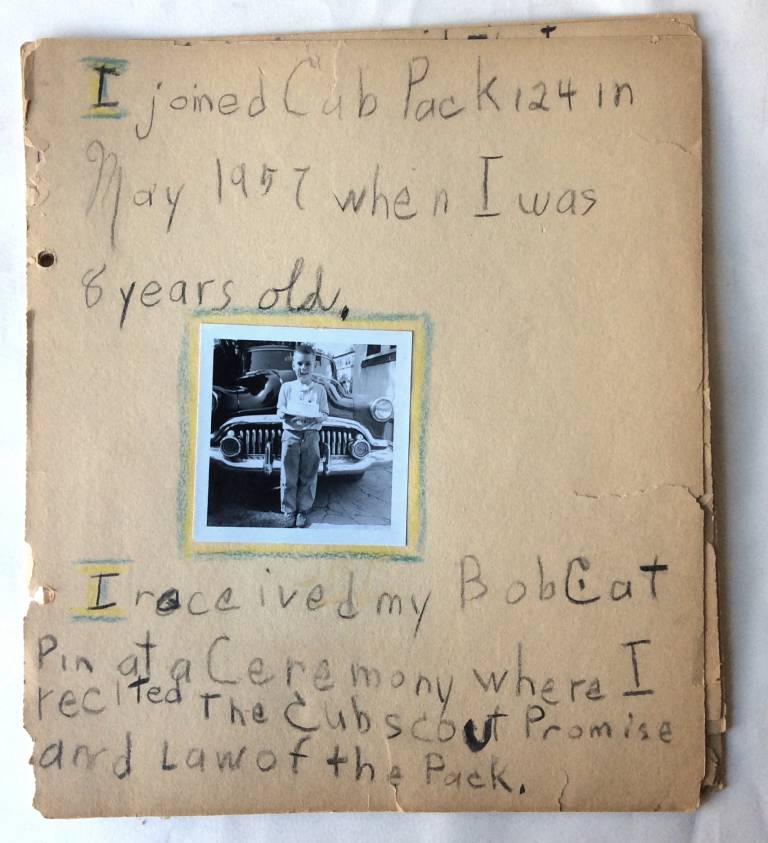 I joined Cub Pack 124 in
May 1957 when I was
8 years old.
I received my BobCat
Pin at a Ceremony where I
recited The Cub scout Promise
and Law of the Pack.